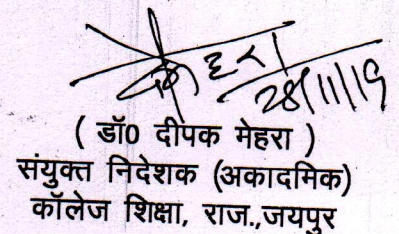 28/11/19
( डॉ0 दीपक मेहरा )
संयुक्त निदेशक (अकादमिक)
कॉलेज शिक्षा, राज.,जयपुर